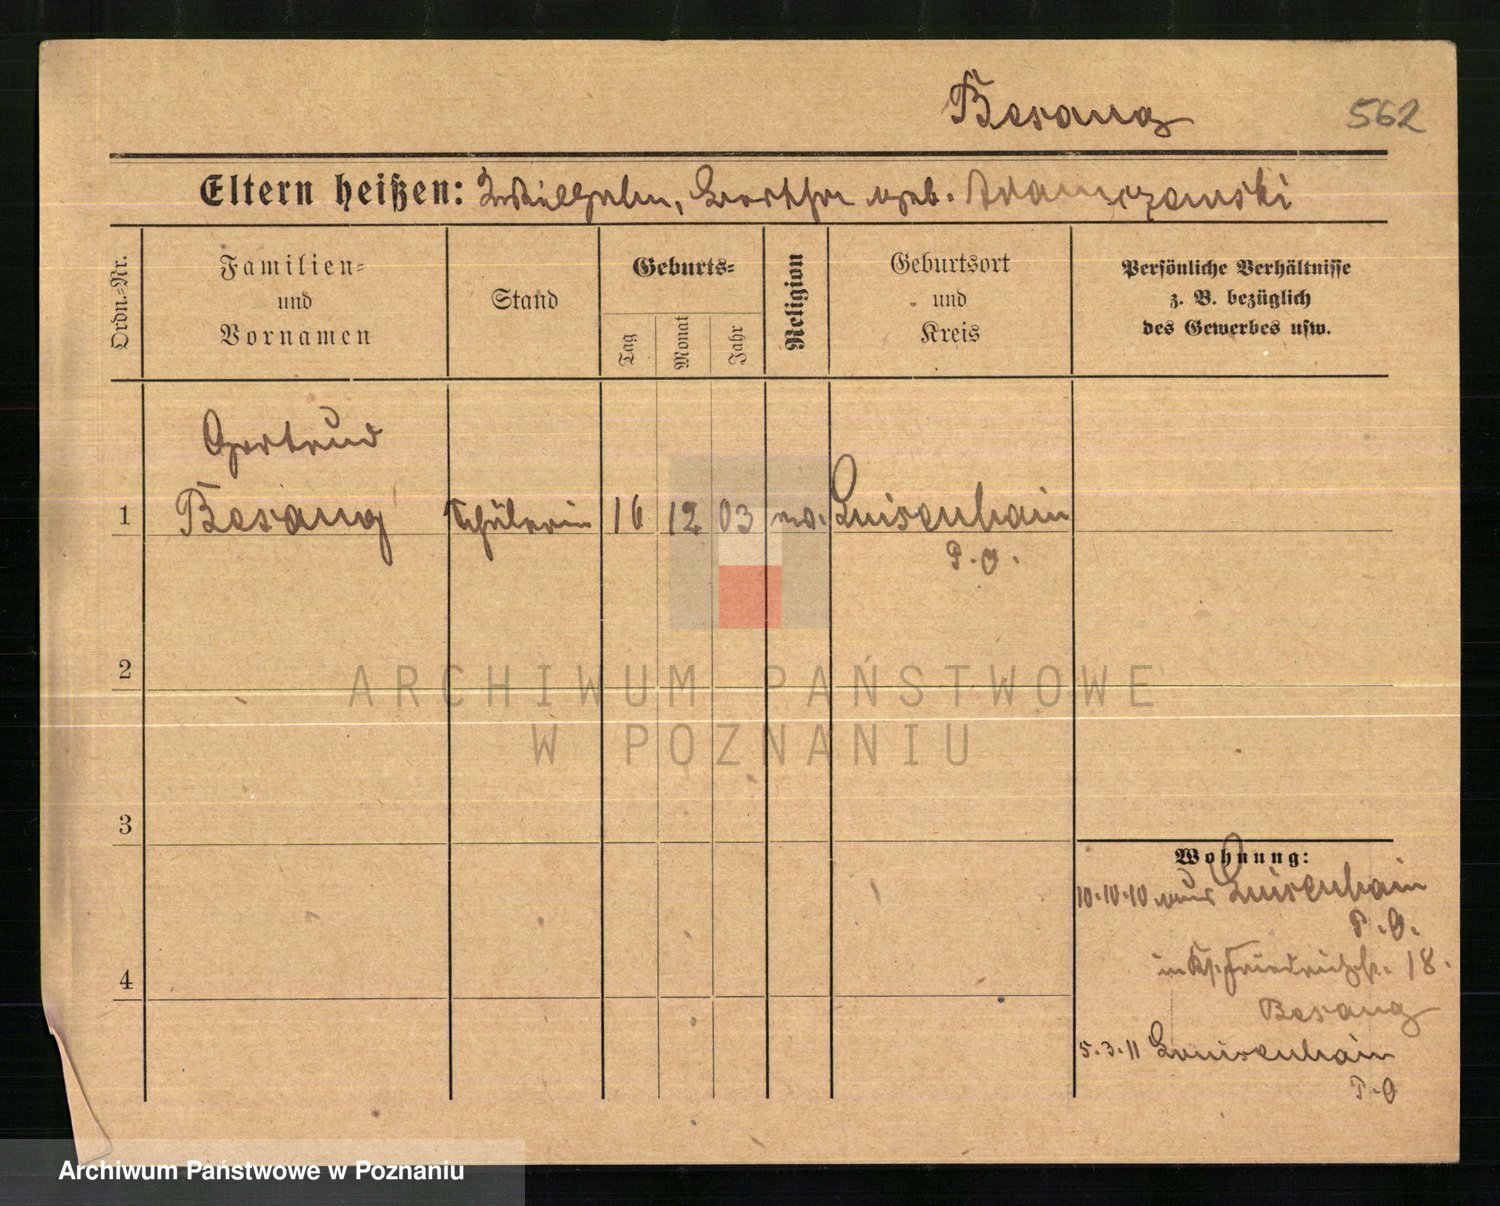 Besang
562
Eltern heißen: Wilhelm, Bertha geb. Adamczewski
Ordn.-Nr.
Familien-
und
Vornamen
Stand
Geburts-
Tag
Monat
Jahr
Religion
Geburtsort
und
Kreis
Persönliche Verhältnisse
z. B. bezüglich
des Gewerbes usw.
Gertrud
1 Besang Schülerin 16 12 03 ev. Luisenhain
P. O.
2
ARCHIWUM PAŃSTWOWE
W POZNANIU
3
4
Wohnung:
10.10.10 aus Luisenhain
P. O.
in Friedrichstr. 18.
Besang
5.3.11 Louisenhain
P. O
Archiwum Państwowe w Poznaniu